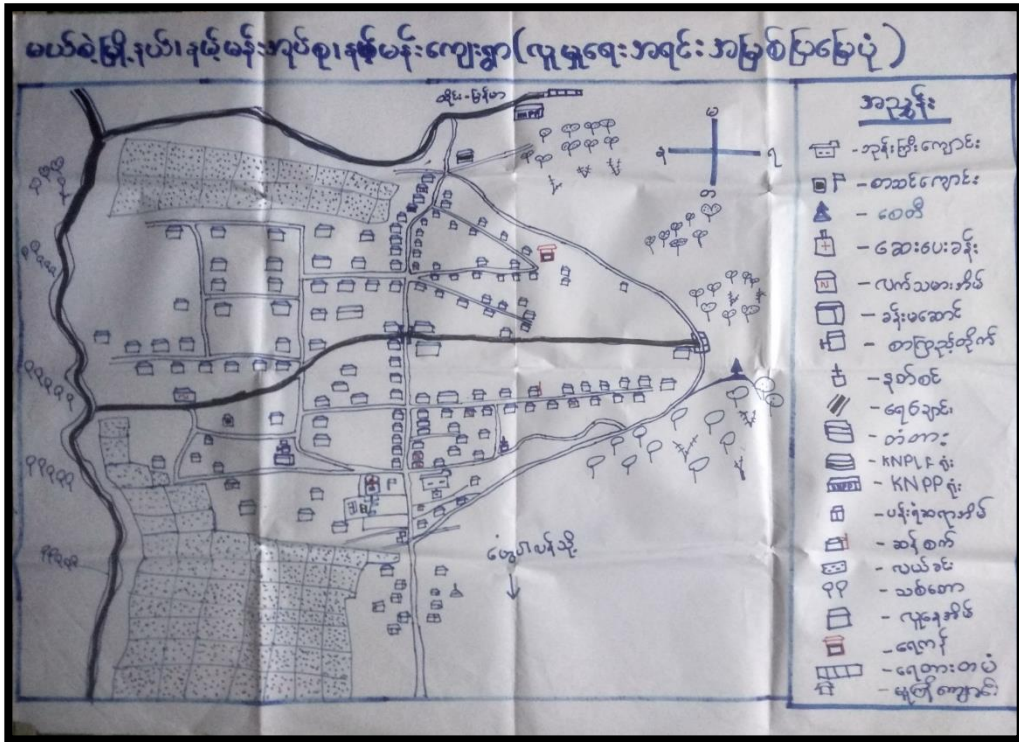 မယ်စဲ့မြို့နယ်၊နမ့်မန်းအုပ်စု၊နမ့်မန်းကျေးရွာ(လူမှုရေးအရင်းအမြစ်ပြမြေပုံ)
ထိုင်း-မြန်မာ
မ
န
ရ
တ
အညွှန်း
-ဘုန်းကြီးကျောင်း
-စာသင်ကျောင်း
-စေတီ
-ဆေးပေးခန်း
-လက်သမားအိမ်
-ခန်းမဆောင်
-စာကြည့်တိုက်
-နတ်စင်
-ရေချောင်း
-တံတား
-KNPLFရုံး
-KNPPရုံး
-ပန်းရံဆရာအိမ်
-ဆန်စက်
-လယ်ခင်း
-သစ်တော
-လူနေအိမ်
-ရေကန်
-ရေတားတမံ
-မူကြိုကျောင်း